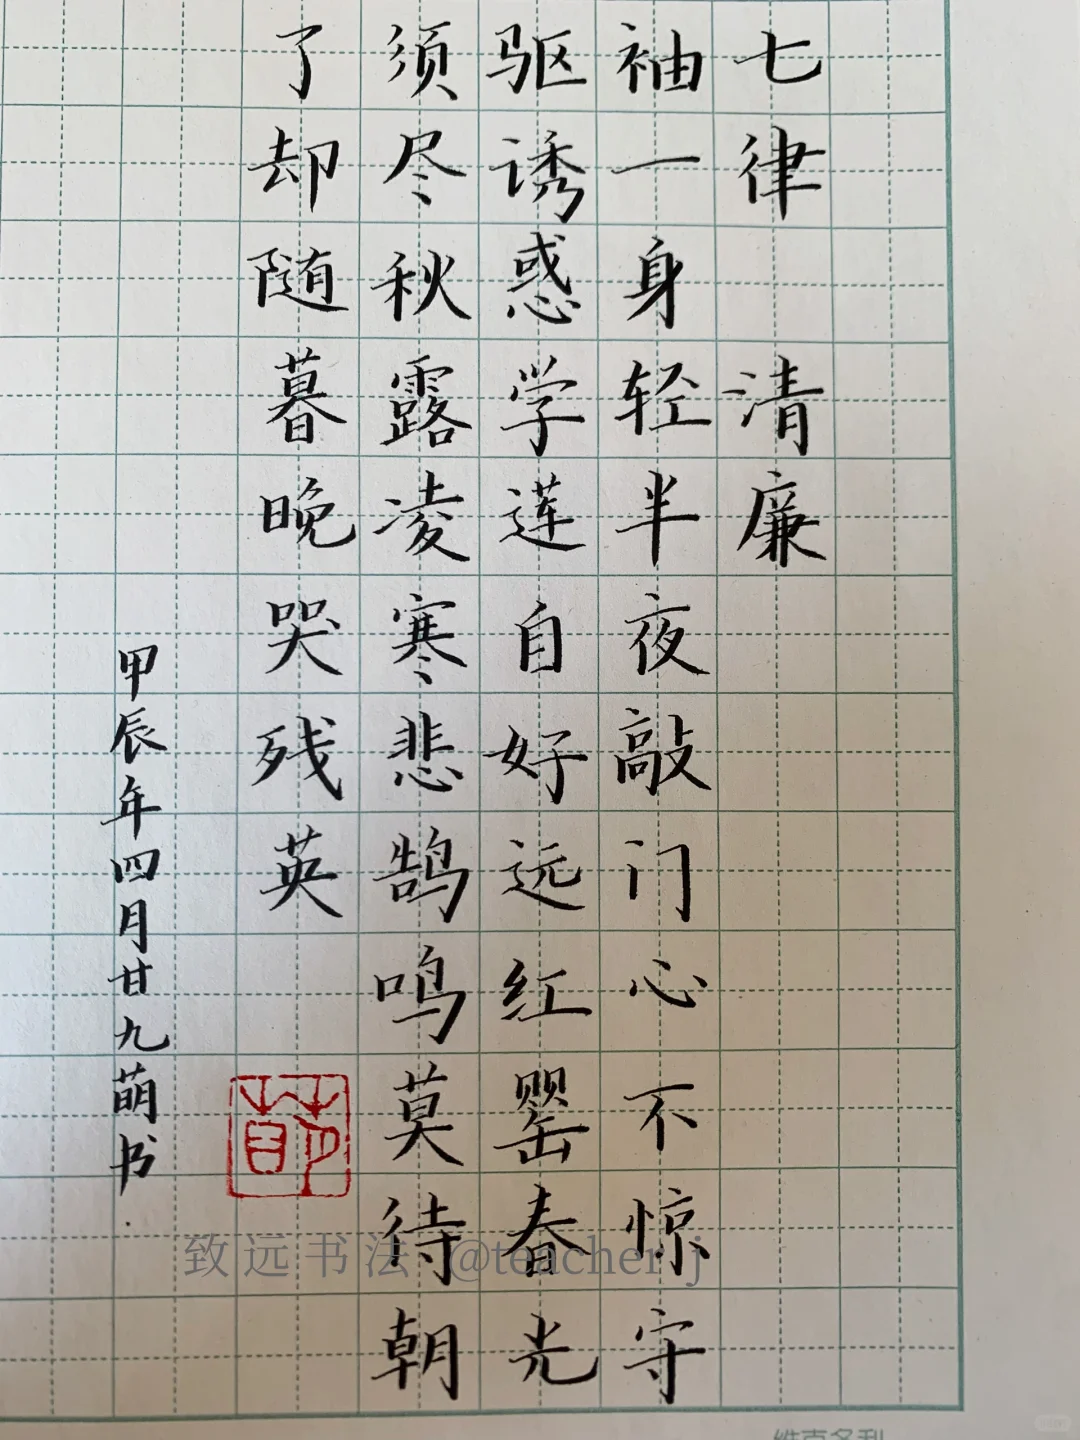 七律 清廉
袖一身轻半夜敲门心不惊守
驱诱惑学莲自好远红罂春光
须尽秋露凌寒悲鹄鸣莫待朝
了却随暮晚哭残英
甲辰年四月廿九萌书
致远书法 @teacher j